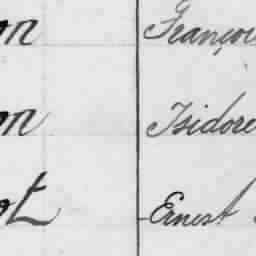 on Françoi
on Isidore
ot Ernest